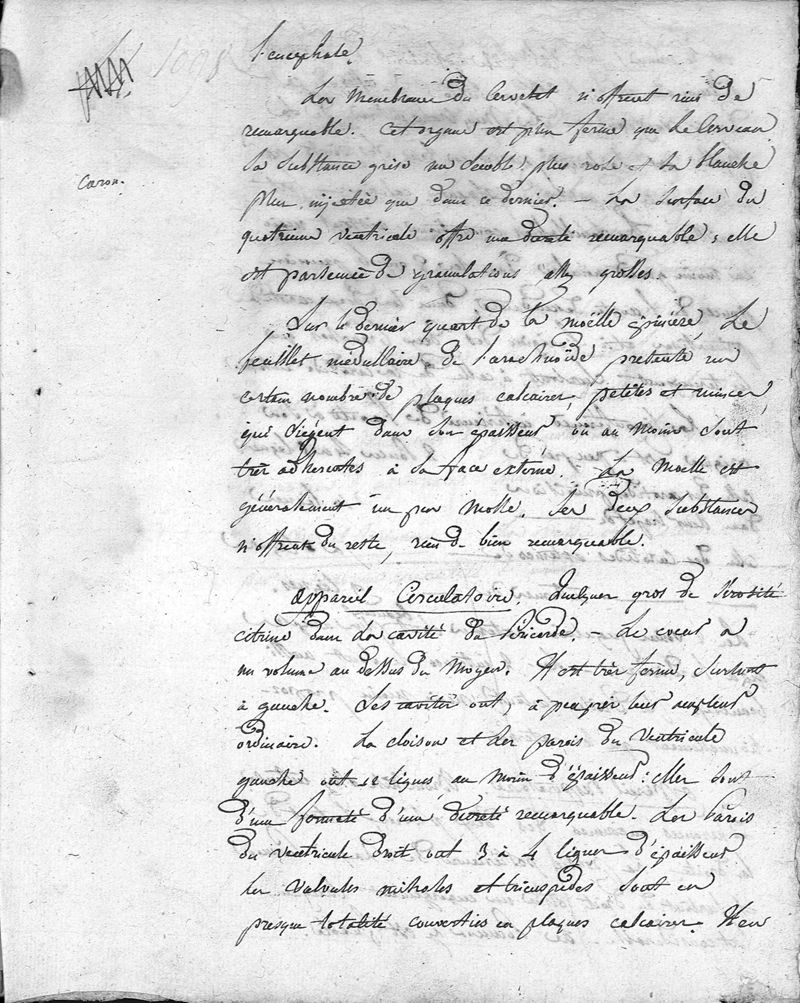 l'encéphale.
Les Membranes du Cervelet n'offrent rien de
remarquable. Cet organe est plus ferme que le Cerveau
Sa Substance grise me Semble plus rose et Sa blanche
plus injectée que dans ce dernier. — La Surface du
quatrieme ventricule offre une dureté remarquable ; elle
est parsemée de granulations assez grosses.
Sur le dernier quart de la moëlle épinière, Le
feuillet médullaire de l'arachnoïde présente un
certain nombre de plaques calcaires, petites et minces,
qui Siègent dans Son épaisseur où au Moins Sont
très adhérentes à Sa face externe. La Moelle est
généralement un peu Molle. Ses deux Substances
n'offrent du reste, rien de bien remarquable.
Appareil Circulatoire. Quelques gros de Sérosité
citrine dans la cavité du Péricarde — Le coeur a
un volume au dessus du Moyen. Il est très ferme, Surtout
à gauche. Ses cavités ont, à peu près leur ampleur
ordinaire. La cloison et les parois du Ventricule
gauche ont 12 lignes au Moins d'épaisseur : elles Sont
d'une fermeté d'une dureté remarquable. Les Parois
du Ventricule droit ont 3 à 4 lignes d'épaisseur
les valvules mitrales et tricuspides Sont en
presque totalité converties en plaques calcaires. Il en
Caron.
1098